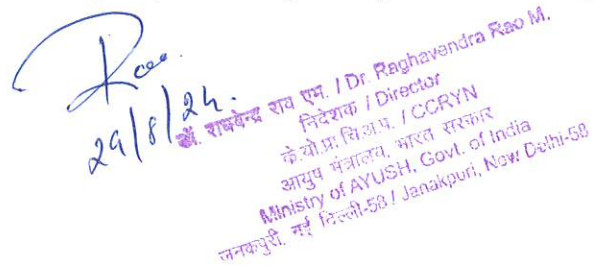 Rao
29/8/24.
डॉ. राघवेन्द्र राव एम. / Dr. Raghavendra Rao M.
निदेशक / Director
के.यो.प्रा.चि.अ.प. / CCRYN
आयुष मंत्रालय, भारत सरकार
Ministry of AYUSH, Govt. of India
जनकपुरी, नई दिल्ली-58 / Janakpuri, New Delhi-58